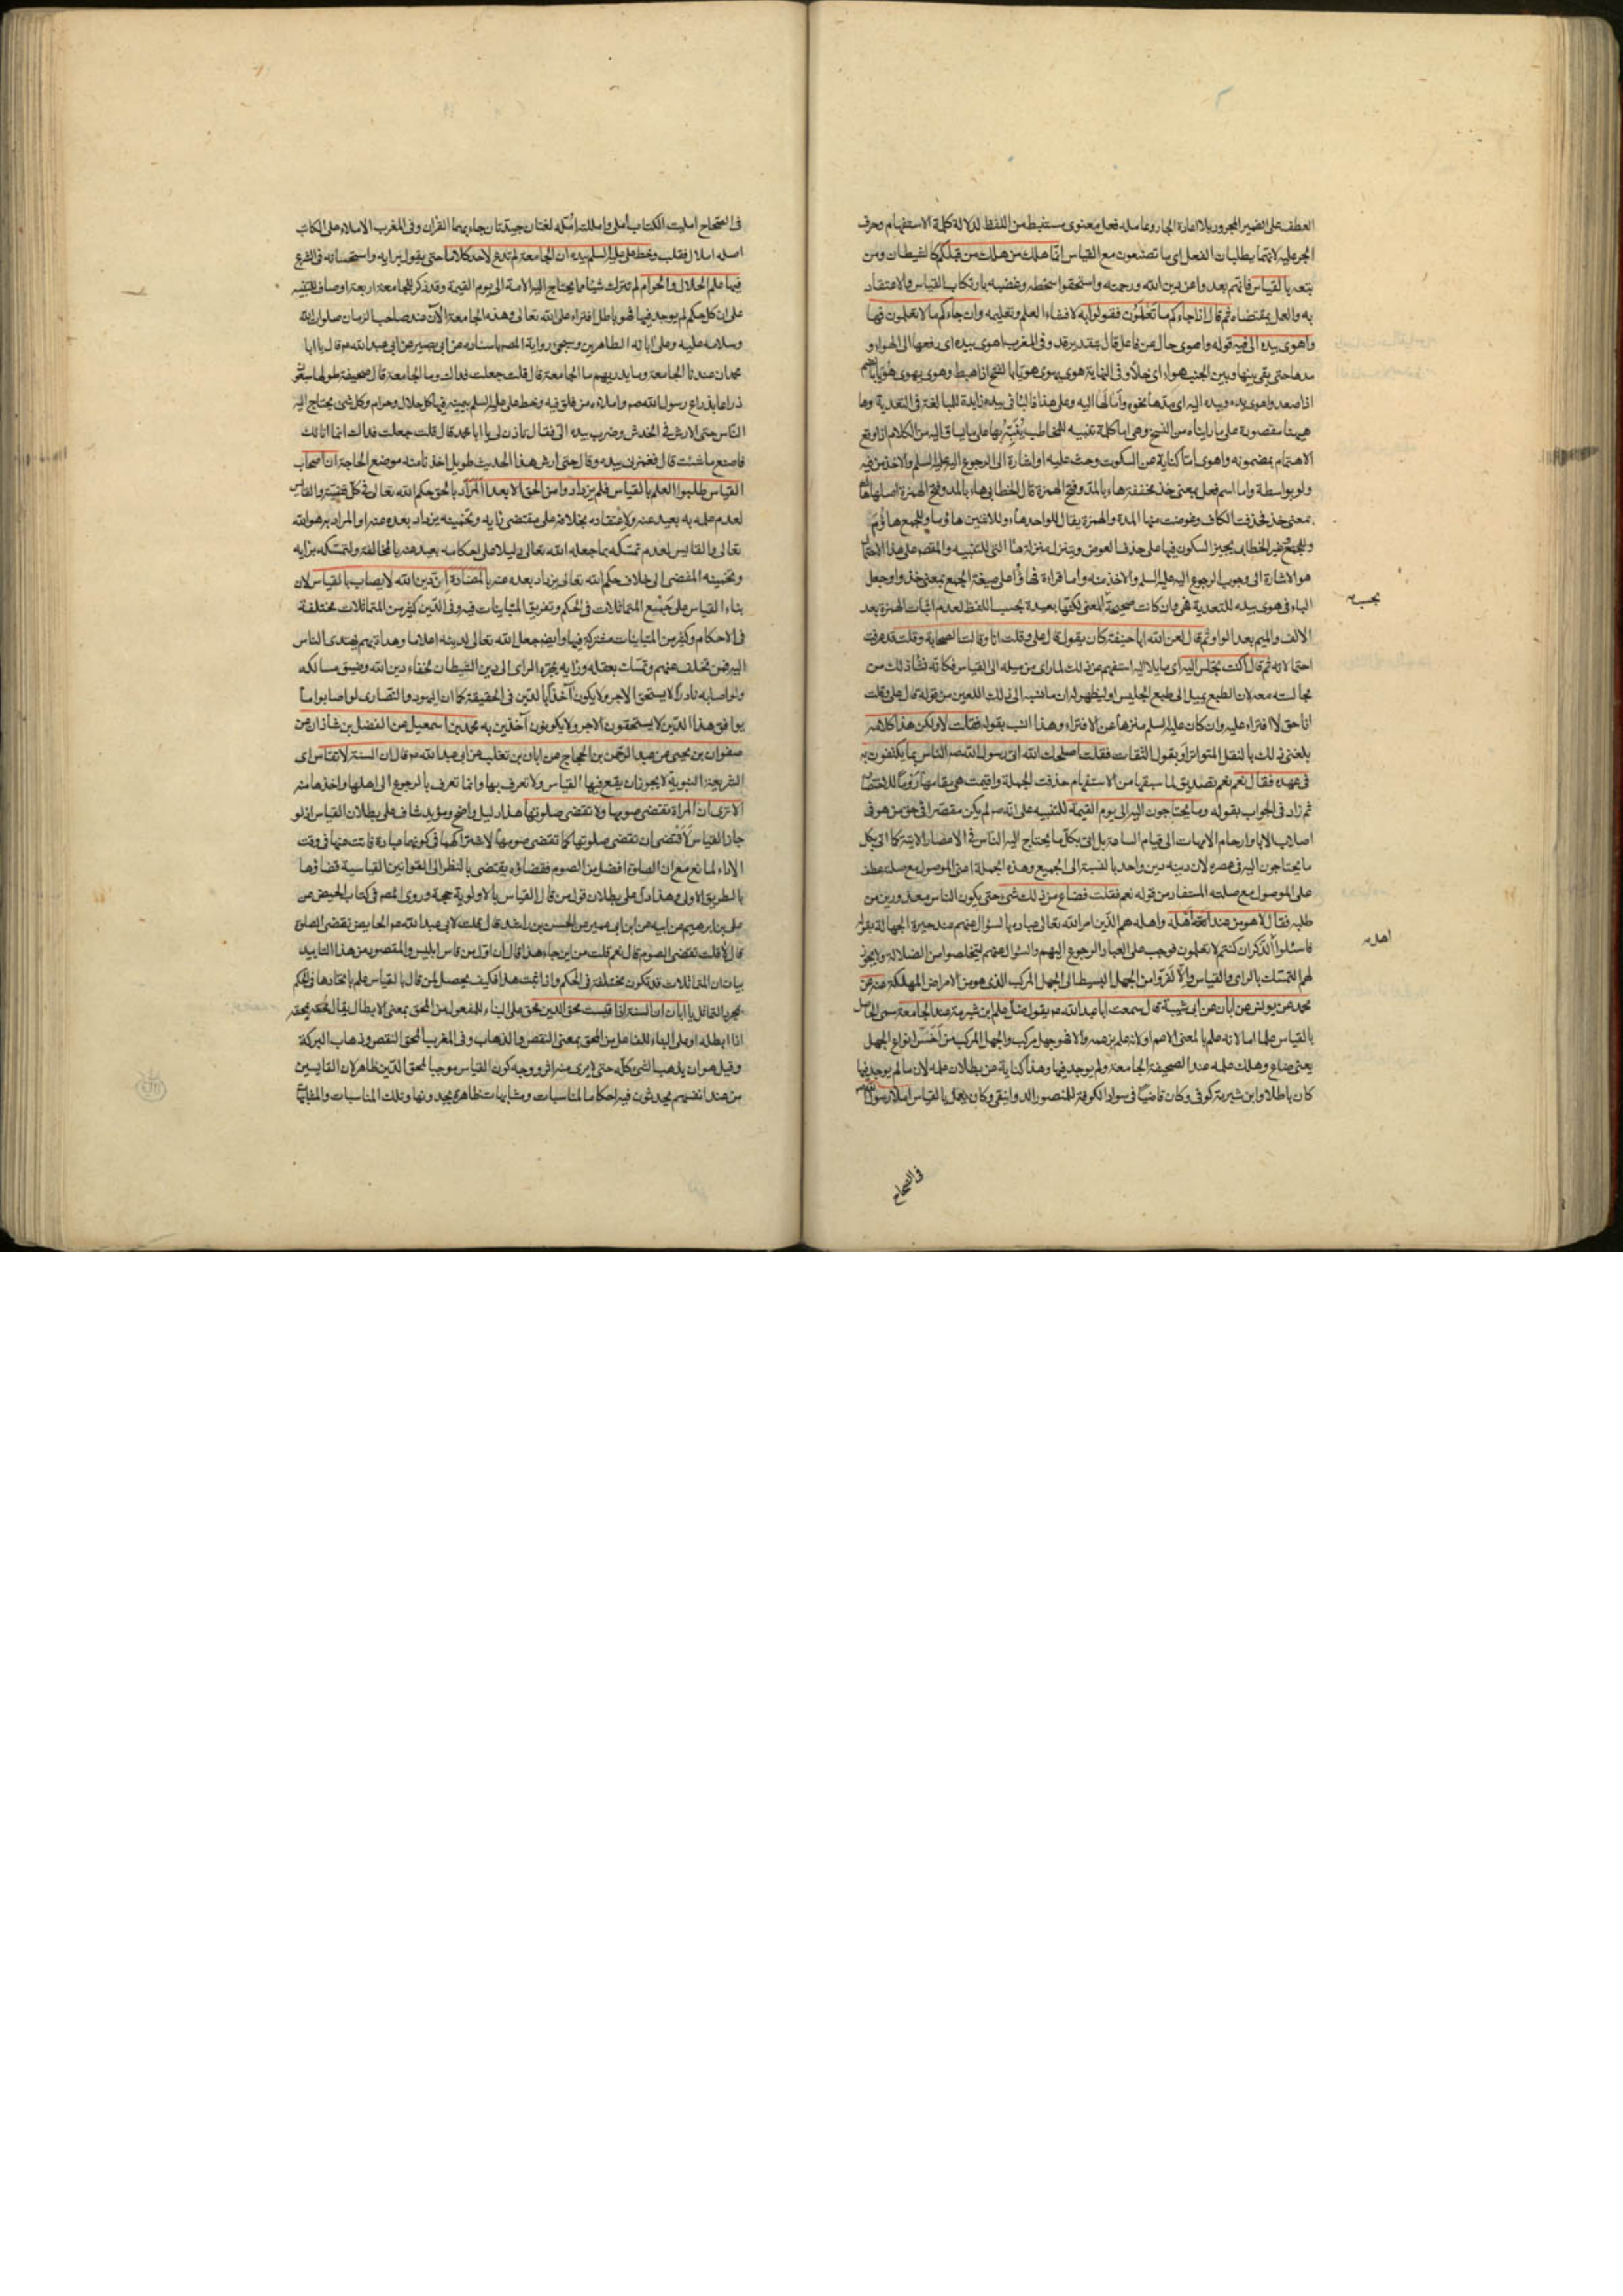 العطف على الضمير المجرور بلا اعادة الجار وعامله فعل معنوى مستنبط من اللفظ لدلالة كلمة الاستفهام وحرف
الجر عليه لانهما يطلبان الفعل اى ما تصنعون مع القياس انما هلك من هلك من قبلكم كالشيطان ومن
يتعه بالقياس فانهم بعدوا عن دين الله ورحمته واستحقوا سخطه وغضبه بارتكاب القياس والاعتقاد
به والعمل بمقتضاه ثم قال اذا جاءكم ما تعلمون فقولوا به لافشاء العلم وتعليمه وان جاءكم ما لا تعلمون فها
واهوى بيده الى فيه قوله واهوى حال عن فاعل قال بتقدير قد وفى المغرب اهوى بيده اى رفعها الى الهواء و
مدها حتى بقى بينها وبين الجنب هواء اى خلاء وفى النهاية هوى يهوى هويا بالفتح اذا هبط وهوى يهوى هويا بالضم
اذا صعد واهوى يده وبيده اليه اى مدها نحوه وامالها اليه وعلى هذا فالباء فى بيده زايدة للمبالغة فى التعدية وها
هيهنا مقصورة على ما رايناه من النسخ وهى اما كلمة تنبيه للمخاطب ينبه بها على ما يساق اليه من الكلام اذا وقع
الاهتمام بمضمونه واهوى اما كناية عن السكوت وحث عليه او اشارة الى الرجوع اليه عليه السلم والاخذ من فيه
ولو بواسطة واما اسم فعل بمعنى خذ مخففة هاء بالمد وفتح الهمزة قال الخطابى هاء بالمد وفتح الهمزة اصلها هاك
بمعنى خذ فحذفت الكاف وعوضت منها المدة والهمزة يقال للواحد هاء وللاثنين هاؤما وللجمع هاؤم
وللجمع غير الخطابى يجيز السكون فيها على حذف العوض ويتنزل منزلة ها التى للتنبيه والمقصر على هذا الاحتمال
هو الاشارة الى وجوب الرجوع اليه عليه السلم والاخذ منه واما قراءة فهاؤا على صيغة الجمع بمعنى خذوا وجعل
الباء فى هوى بيده للتعدية فهى وان كانت صحيحة المعنى لكنها بعيدة بحسب اللفظ لعدم اثبات الهمزة بعد
الالف والميم بعد الواو ثم قال لعن الله ابا حنيفة كان يقول قال على وقلت انا وقالت الصحابة وقلت قد عرفت
احتمالاته ثم قال اكنت تجلس اليه اى مايلا اليه استفهم عن ذلك لما راى من ميله الى القياس فكانه نشا ذلك من
مجالسته معه لان الطبع يميل الى طبع الجليس او ليظهر له ان ما نسبه الى ذلك اللعين من قوله قال على وقلت
انا حق لا افتراء عليه وان كان عليه السلم منزها عن الافتراء وهذا انسب بقوله فقلت لا ولكن هذا كلامه
بلغنى ذلك بالنقل المتواتر او بقول الثقات فقلت اصلحك الله اتى رسول الله صم الناس بما يكتفون به
فى عهده فقال نعم نعم تصديق لما سبقها من الاستفهام حذفت الجملة واقيمت هى مقامها
ثم زاد فى الجواب بقوله وما يحتاجون اليه الى يوم القيمة للتنبيه على انه صم لم يكن مقصرا فى حق من هو فى
اصلاب الاباء وارحام الامهات الى قيام الساعة بل اتى بكل ما يحتاج اليه الناس فى الاعصار الاتية كما اتى بكل
ما يحتاجون اليه فى عصره لان دينه دين واحد بالنسبة الى الجميع وهذه الجملة اعنى الموصول مع صلته عطف
على الموصول مع صلته المستفاد من قوله نعم فقلت فضاع من ذلك شىء حتى يكون الناس معذورين من
طلبه فقال لا هو عند اهله واهله هم الذين امر الله تعالى عباده بالسؤال عنهم عند حيرة الجهالة بقوله
فاسئلوا اهل الذكر ان كنتم لا تعلمون فوجب على العباد الرجوع اليهم والسؤال عنهم ليتخلصوا من الضلالة ولا يجوز
لهم التمسك بالراى والقياس والا لفروا من الجهل البسيط الى الجهل المركب الذى هو من الامراض المهلكة عنه عن
محمد عن يونس عن ابان عن ابى شيبة قال سمعت ابا عبد الله عم يقول ضل علم ابن شبرمة عند الجامعة سمى الحاصل
بالقياس علما اما لانه علم بالمعنى الاعم او لانه علم بزعمه والا فهو جهل مركب والجهل المركب من اخس انواع الجهل
يعنى ضاع وهلك علمه عند الصحيفة الجامعة ولم يوجد فيها وهذا كناية عن بطلان علمه لان ما لم يوجد فيها
كان باطلا وابن شبرمة كوفى وكان قاضيا فى سواد الكوفة للمنصور الدوانيقى وكان يعمل بالقياس املاء رسول الله صم
يجب
اهل
فى الصحاح
فى الصحاح امليت الكتاب املى واملكت امله لغتان جيدتان جاء بهما القران وفى المغرب الاملاء على الكاتب
اصله املال فقلب وخط على عليه السلم بيده ان الجامعة لم تدع لاحد كلاما حتى يقول برايه واستحسانه فى الشرع
فيها علم الحلال والحرام لم تترك شيئا مما يحتاج اليه الامة الى يوم القيمة وقد ذكر للجامعة اربعة اوصاف للتنبيه
على ان كل حكم لم يوجد فيها فهو باطل افتراء على الله تعالى وهذه الجامعة الآن عند صاحب الزمان صلوات الله
وسلامه عليه وعلى ابائه الطاهرين وسيجىء رواية المص باسناده عن ابى بصير عن ابى عبد الله عم قال يا ابا
محمد ان عندنا الجامعة وما يدريهم ما الجامعة قال قلت جعلت فداك وما الجامعة قال صحيفة طولها سبعون
ذراعا بذراع رسول الله صم واملاءه من فلق فيه وخط على عليه السلم بيمينه فيها كل حلال وحرام وكل شىء يحتاج اليه
الناس حتى الارش فى الخدش وضرب بيده الى فقال تاذن لى يا ابا محمد قال قلت جعلت فداك انما انا لك
فاصنع ما شئت قال فغمزنى بيده وقال حتى ارش هذا الحديث طويل اخذنا منه موضع الحاجة ان اصحاب
القياس طلبوا العلم بالقياس فلم يزدادوا من الحق الا بعدا المراد بالحق حكم الله تعالى فى كل قضية والقايس
لعدم علمه به بعيد عنه ولاعتقاده بخلافه على مقتضى رايه وتخمينه يزداد بعده عنه او المراد به هو الله
تعالى والقايس لعدم تمسكه بما جعله الله تعالى دليلا على احكامه بعيد عنه بالمخالفة ولتمسكه برايه
وتخمينه المفضى الى خلاف حكم الله تعالى يزداد بعده عنه بالمضادة ان دين الله لا يصاب بالقياس لان
بناء القياس على جمع المتماثلات فى الحكم وتفريق المتباينات فيه وفى الدين كثير من المتماثلات مختلفة
فى الاحكام وكثير من المتباينات مشتركة فيها وايضا جعل الله تعالى لدينه اعلاما وهداة بهم يهتدى الناس
اليه فمن تخلف عنهم وتمسك بعقله ورايه يجره الراى الى دين الشيطان لخفاء دين الله وضيق مسالكه
ولو اصابه نادرا لا يستحق الاجر ولا يكون آخذا بالدين فى الحقيقة كما ان اليهود والنصارى لو اصابوا ما
يوافق هذا الدين لا يستحقون الاجر ولا يكونون آخذين به محمد بن اسمعيل عن الفضل بن شاذان عن
صفوان بن يحيى عن عبد الرحمن بن الحجاج عن ابان بن تغلب عن ابى عبد الله عم قال ان السنة لا تقاس اى
الشريعة النبوية لا يجوز ان يقع فيها القياس ولا تعرف بها وانما تعرف بالرجوع الى اهلها واخذها منه
الا ترى ان المراة تقضى صومها ولا تقضى صلوتها هذا دليل واضح ومؤيد شاف على بطلان القياس اذ لو
جاز القياس لاقتضى ان تقضى صلوتها كما تقضى صومها لاشتراكهما فى كونهما عبادة فاتت عنها فى وقت
الاداء لمانع مع ان الصلوة افضل من الصوم فقضاؤه يقتضى بالنظر الى القوانين القياسية قضاؤها
بالطريق الاولى وهذا دل على بطلان قول من قال القياس بالاولوية حجة وروى المص فى كتاب الحيض عن
على بن ابرهيم عن ابيه عن ابن ابى عمير عن الحسن بن راشد قال قلت لابى عبد الله عم الحايض تقضى الصلوة
قال لا قلت تقضى الصوم قال نعم قلت من اين جاء هذا قال ان اول من قاس ابليس والمقصود من هذا التاييد
بيان ان المتماثلات قد تكون مختلفة فى الحكم واذا ثبت هذا فكيف يحصل لمن قال بالقياس علم باتحادها فى الحكم
بمجرد التماثل يا ابان ان السنة اذا قيست محق الدين محق على البناء للمفعول من المحق بمعنى الابطال يقال محقه يمحقه
اذا ابطله او على البناء للفاعل من المحق بمعنى النقص والذهاب وفى المغرب المحق النقص وذهاب البركة
وقيل هو ان يذهب الشىء كله حتى لا يرى منه اثر ووجه كون القياس موجبا لمحق الدين ظاهر لان القايسين
من عند انفسهم يحدثون فيه احكاما لمناسبات ومشابهات ظاهرة يجدونها وتلك المناسبات والمشابهات